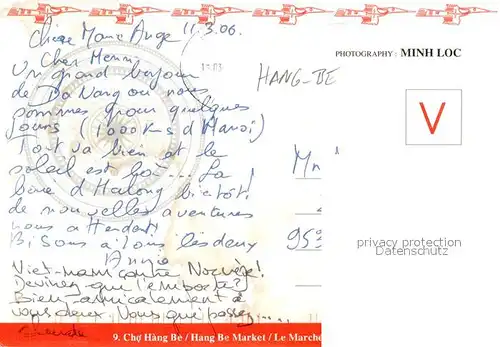 11.3.06.
Chère Marie Ange,
Cher Henri
Un grand bonjour
de Da Nang où nous
sommes pour quelques
jours (1000 kms d'Hanoi)
Tout va bien et le
soleil est là... La
baie d'Halong bientôt!
de nouvelles aventures
nous attendent
Bisous à tous les deux
Annie
Viet-nam contre Norvège!
Devinez qui l'emporte?
Bien amicalement à
vous deux. Vous qui passez....
PHOTOGRAPHY: MINH LOC
HANG-BE
V
Mm
95
privacy protection
Datenschutz
9. Chợ Hàng Bè / Hang Be Market / Le Marché